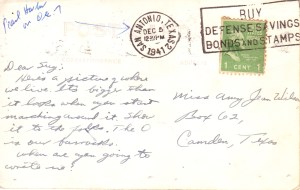 Pearl Harbor
on Dec 7
SAN ANTONIO, TEXAS
DEC 5
12 30 PM
1941
BUY
DEFENSE SAVINGS
BONDS AND STAMPS
1 CENT 1
Dear Sis:
Here's a picture where
we live. It's bigger than
it looks when you start
marching around it. Show
it to the folks. The O
is our barracks.
When are you going to
write me?
Miss Amy Jean
Box 62,
Camden, Texas